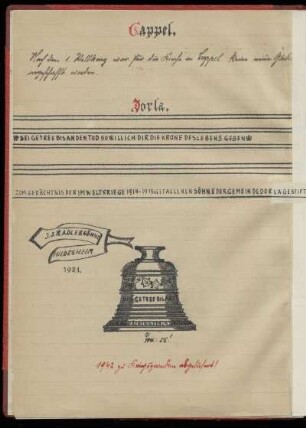 Cappel.
Nach dem 1. Weltkrieg war für die Kirche in Cappel keine neue Glocke
angeschafft worden.
Dorla.
SEI GETREU BIS AN DEN TOD SO WILL ICH DIR DIE KRONE DES LEBENS GEBEN
ZUM GEDÄCHTNIS DER IM WELTKRIEGE 1914-1918 GEFALLENEN SÖHNE DER GEMEINDE DORLA GESTIFTET
J.J. RADLER & SÖHNE
HILDESHEIM
1921.
SEI GETREU BIS AN
1942 zu Kriegszwecken abgeliefert!